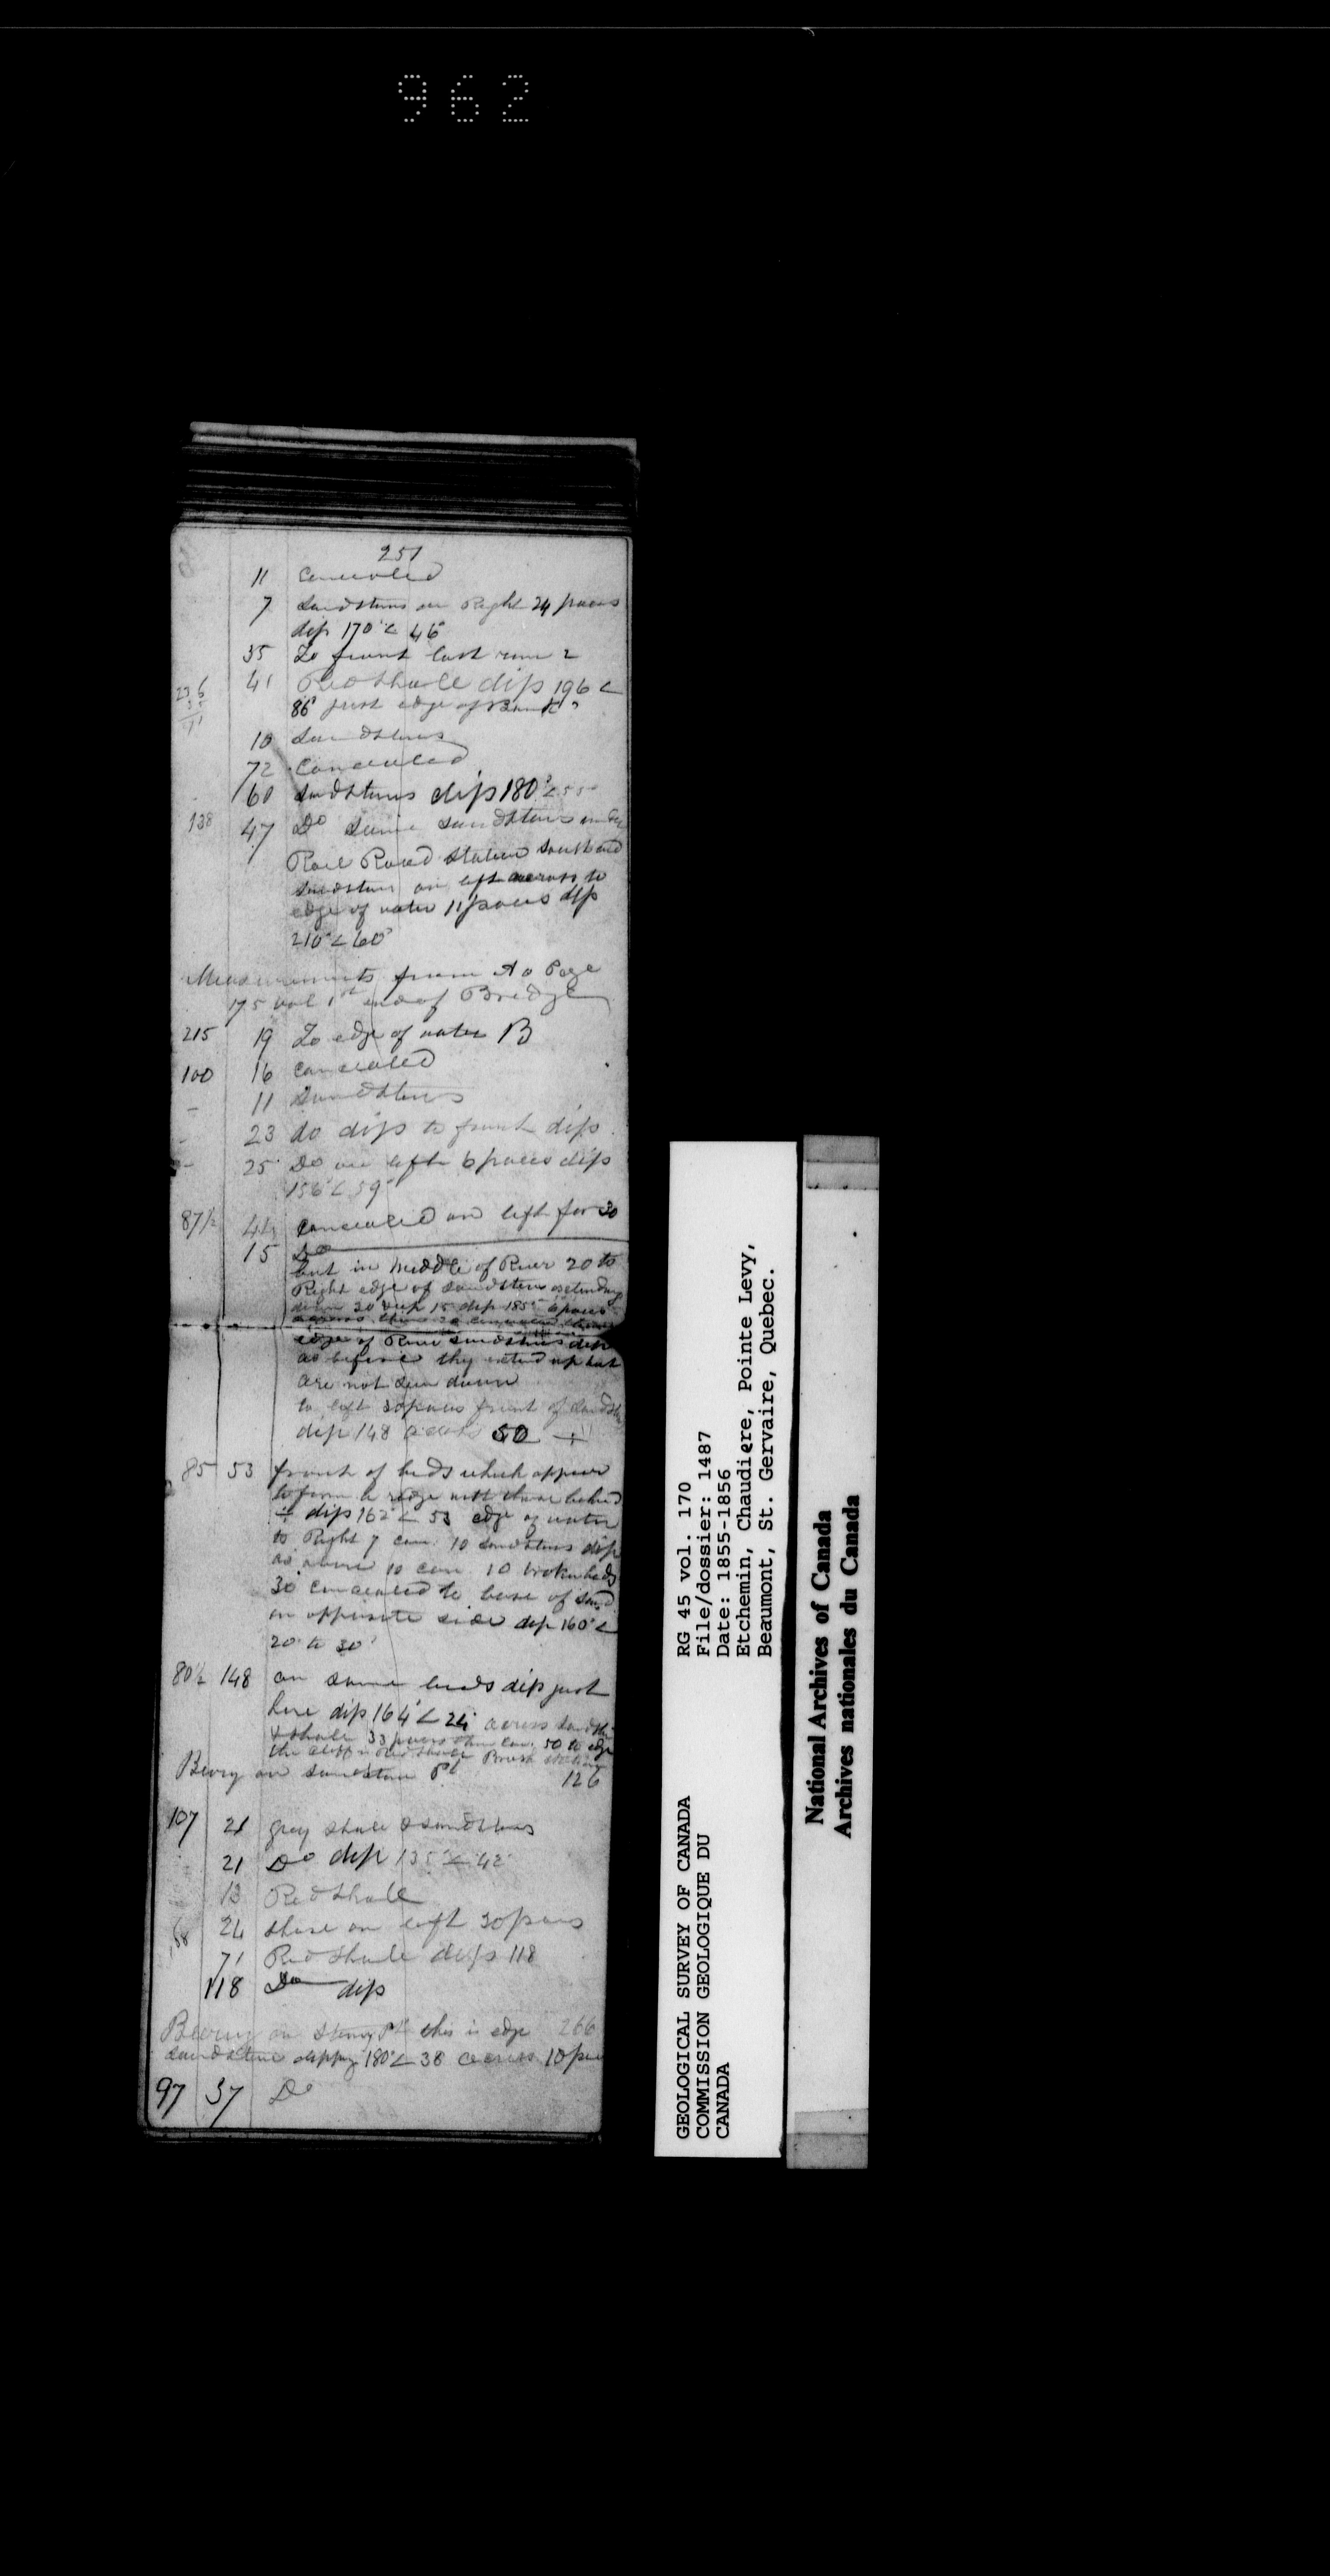 962
251
11 concealed
7 Sandstones on Right 24 paces
dip 170° < 46°
35 To front last run 2
41 Red Shale dip 196 <
236
35
86° just edge of Bank
10 Sandstones
72 Concealed
60 Sandstones dip 180° < 55
138 47 Do Same Sandstones under
Rail Road Station South and
Sandstone on left across to
edge of water 11 paces dip
210° < 60°
Measurements from A o Page
175 vol 1st end of Bridge
215 19 To edge of water B
100 16 concealed
- 11 Sandstones
- 23 do dip to front dip
- 25 Do on left 6 paces dip
156° < 59°
87½ 44 Concealed on left for 30
15 Do
but in Middle of River 20 to
Right edge of Sandstone extending
down 30 15 dip 185° 6 paces
across then 20 concealed then
edge of River Sandstones dip
as before they extend up but
are not seen down
to left 30 paces front of Sandstone
dip 148 50 ÷
85 53 front of beds which appear
to form a ridge with those behind
÷ dip 162° < 53 edge of water
to Right 7 con. 10 Sandstones dip
as above 10 con 10 broken beds
30 concealed to base of Sand.
on opposite side dip 160° <
20° to 30°
80½ 148 on same beds dip just
here dip 164° < 24° across Sandsto
& Shale 33 paces then con. 50 to edge
the cliff is Red Shale
Bearing on Sandstone Pt 126
107 21 grey Shale & Sandstones
21 Do dip 135° < 42°
13 Red Shale
168 24 these on left 30 paces
71 Red Shale dip 118
118 Do dip
Bearing on Stony Pt this is edge 266
Sandstone dipping 180° < 38 across 10 pa
97 37 Do
GEOLOGICAL SURVEY OF CANADA
COMMISSION GEOLOGIQUE DU
CANADA
RG 45 vol. 170
File/dossier: 1487
Date: 1855-1856
Etchemin, Chaudiere, Pointe Levy,
Beaumont, St. Gervaire, Quebec.
National Archives of Canada
Archives nationales du Canada